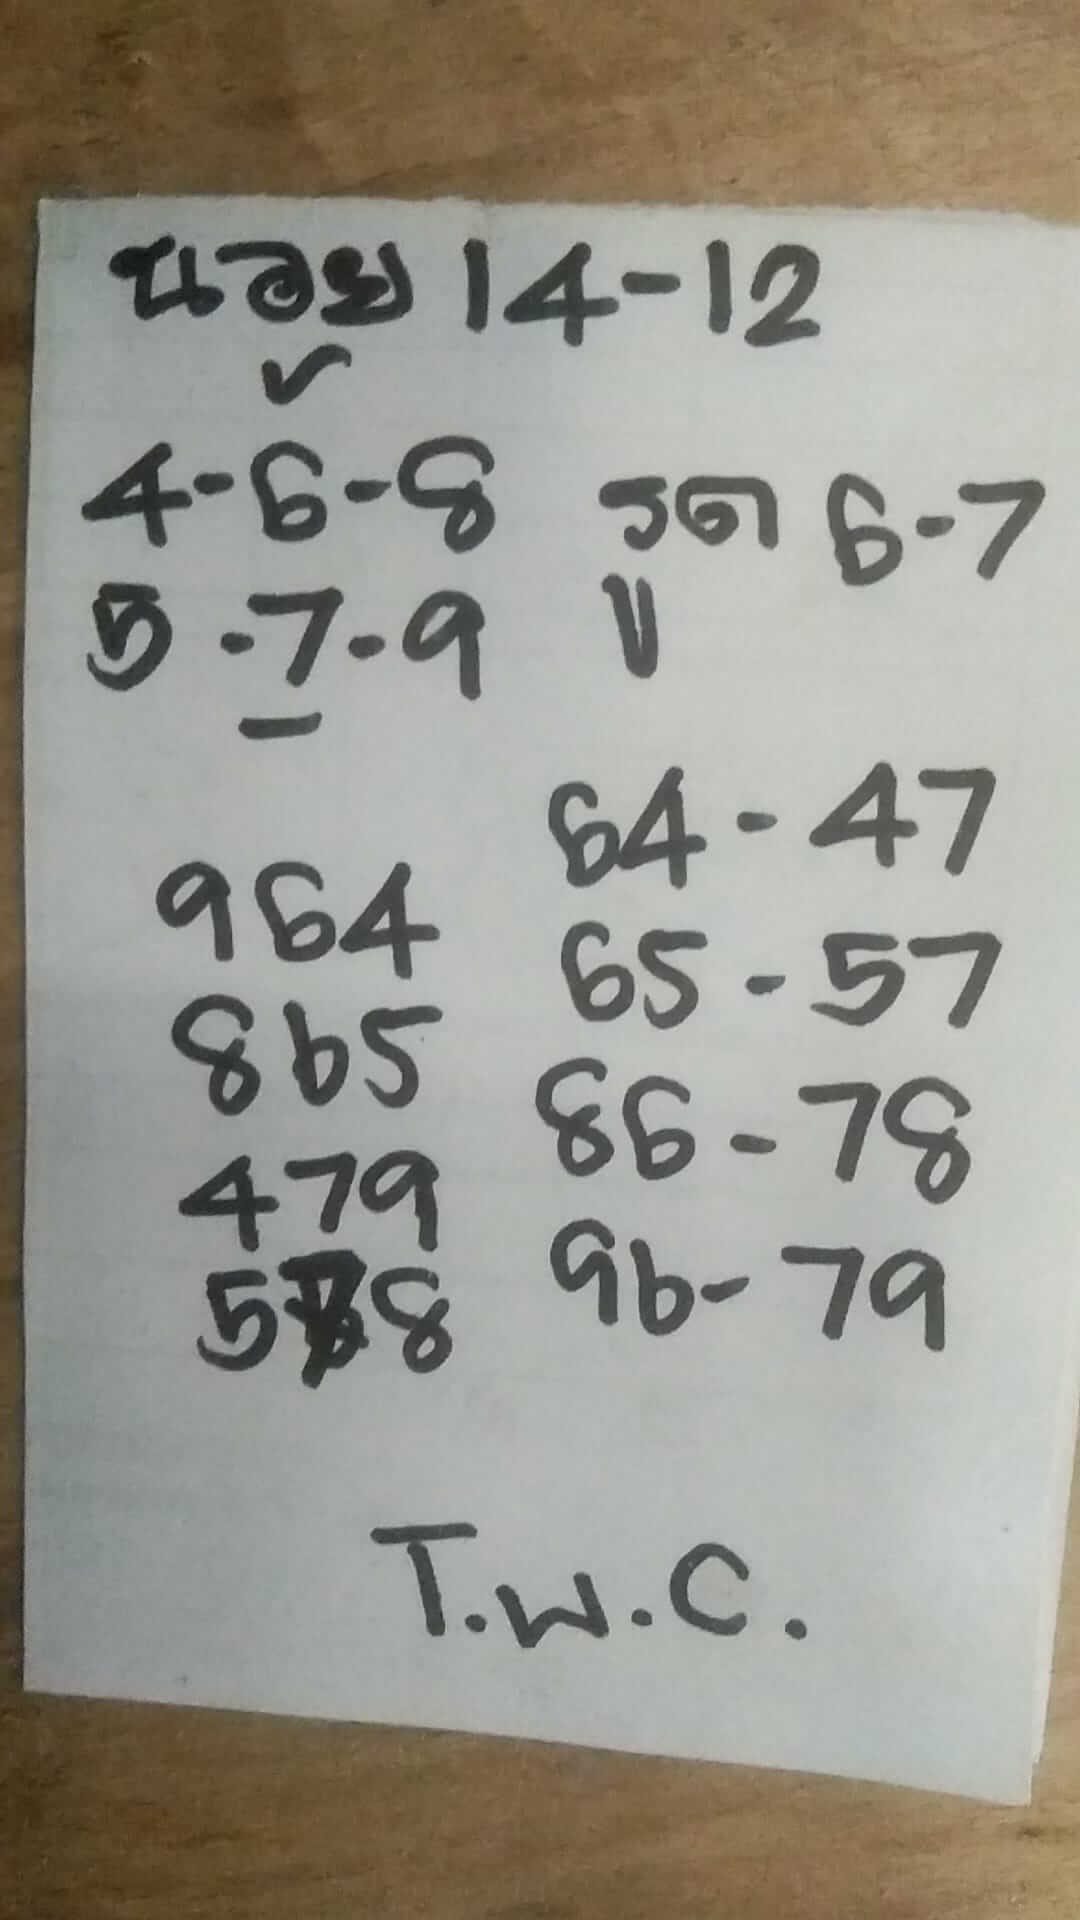 นอย 14-12
✓
4-6-8 รูด 6-7
5-7-9
64-47
964
65-57
865
86-78
479
96-79
578
T.W.C.